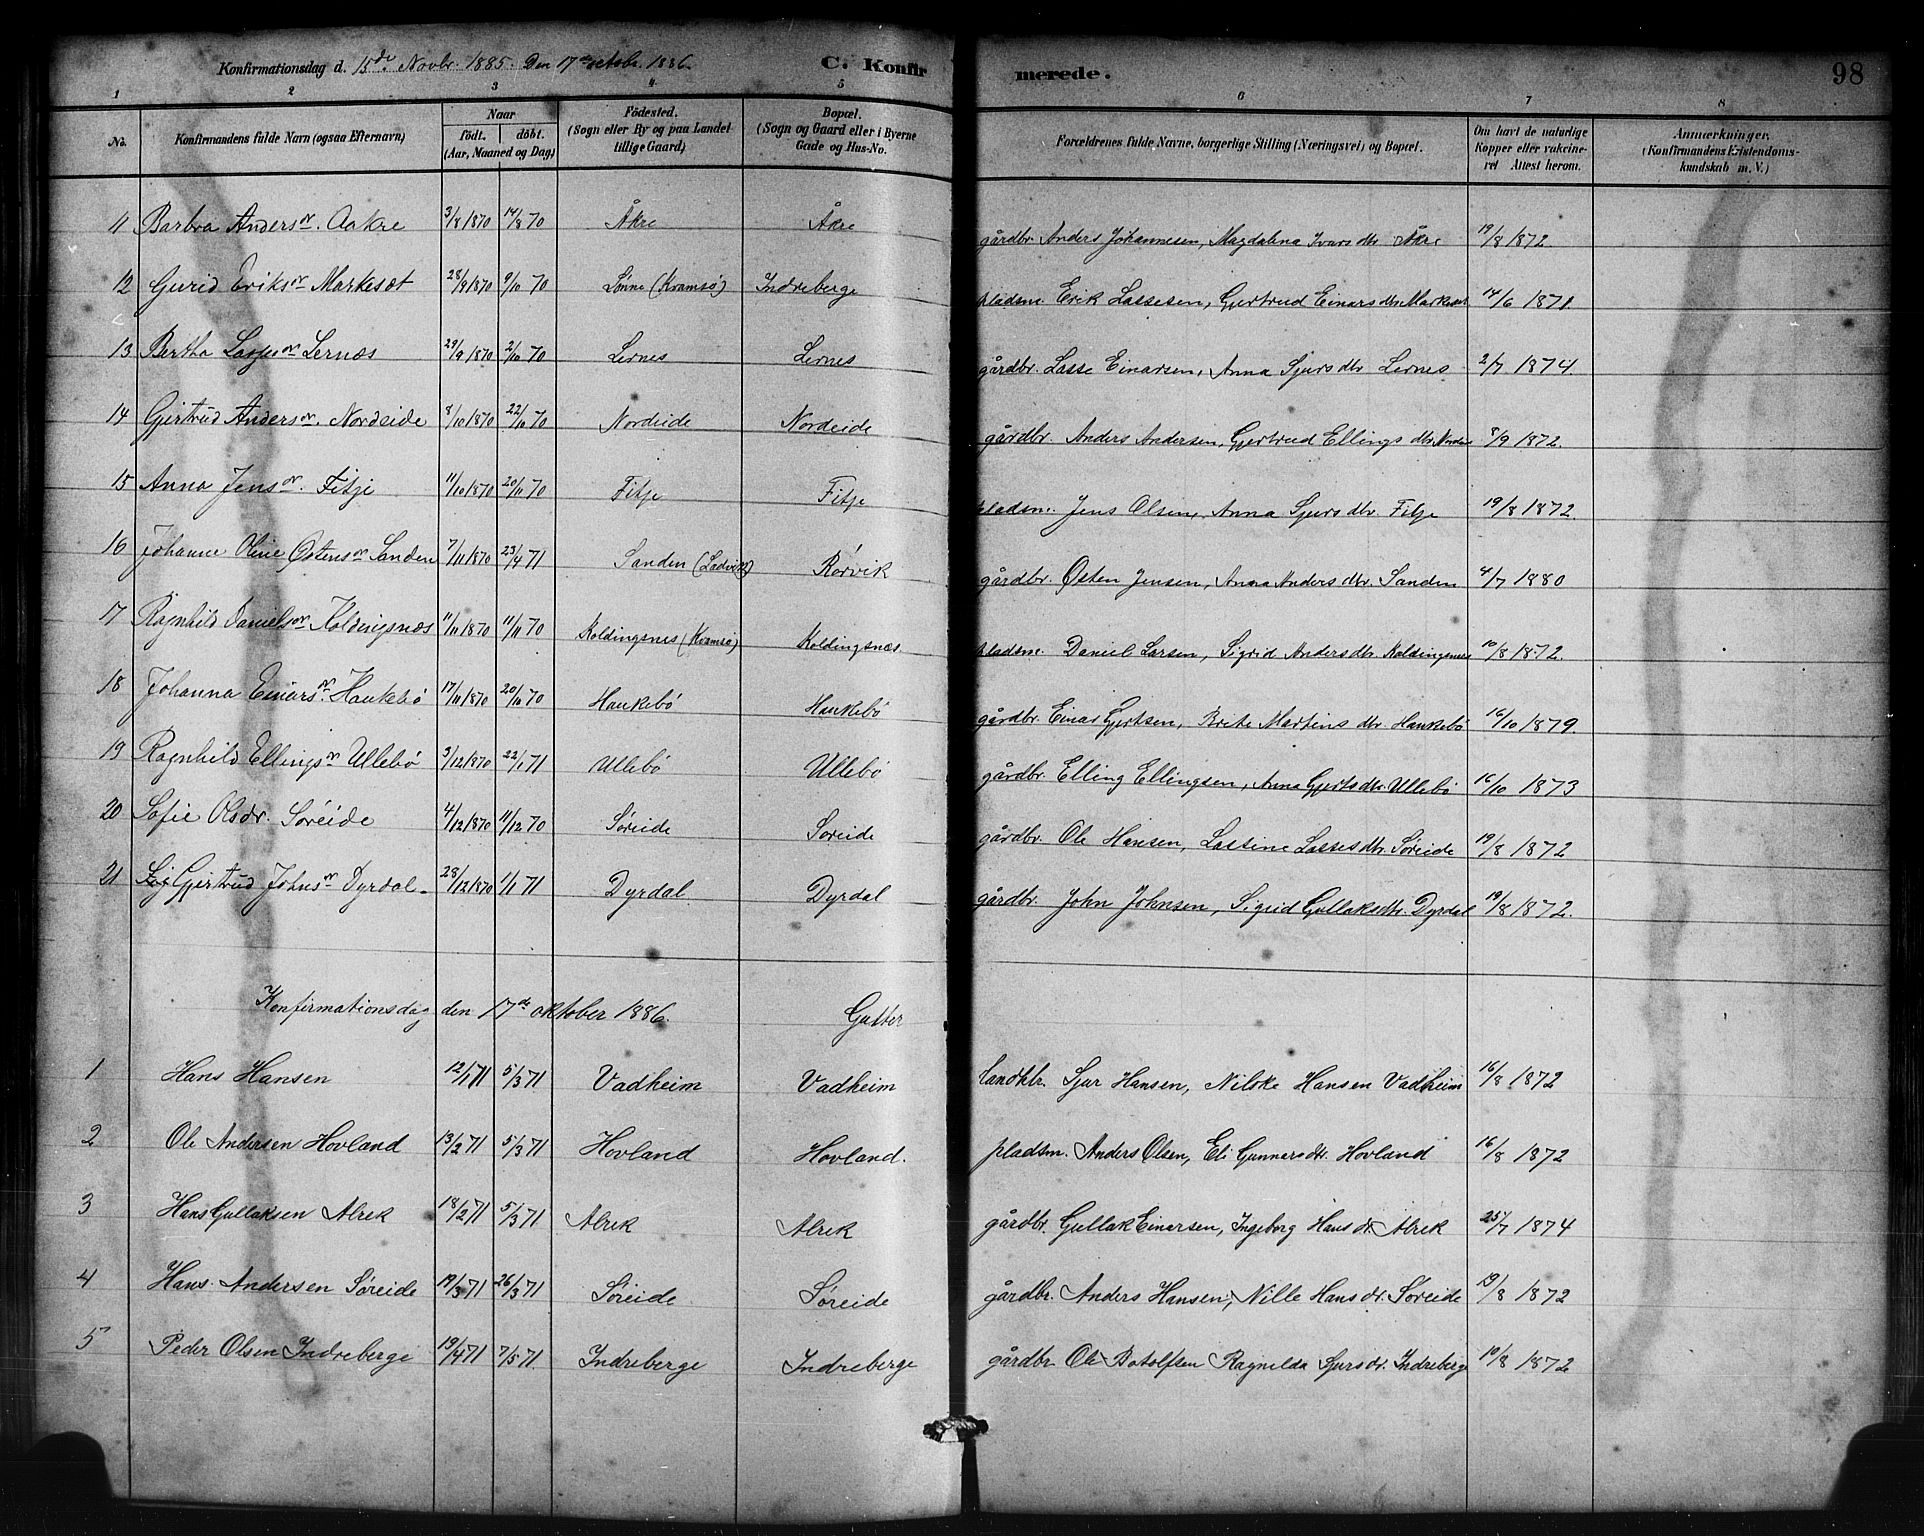 Konfirmationsdag d. 15de Novbr. 1885. Den 17de octobr. 1886. C. Konfirmerede. 98
1 2 3 4 5 6 7 8
No. Konfirmandens fulde Navn (ogsaa Efternavn) Naar födt. döbt. (Aar, Maaned og Dag) Födested. (Sogn eller By og paa Landet tillige Gaard) Bopæl. (Sogn og Gaard eller i Byerne Gade og Hus-No. Forældrenes fulde Navne, borgerlige Stilling (Næringsvei) og Bopæl. Om havt de naturlige Kopper eller vakcineret Attest herom. Anmærkninger, (Konfirmandens Kristendomskundskab m. V.)
11 Barbra Andersdr. Aakre 3/8 1870 14/8 70 Åkre Åkre gårdbr. Anders Johannesen, Magdalena Ivarsdtr Åkre 19/8 1872
12 Gurid Eriksdr Markeset 28/9 1870 9/10 70 Lønne (Kvamsø) Indreberge pladsm. Erik Lassesen, Gjertrud Einarsdtr Markeset 14/6 1871.
13 Bertha Lassedr Lernæs 29/9 1870 2/10 70 Lernes Lernes gårdbr. Lasse Einarsen, Anna Sjursdtr Lernes 2/7 1874.
14 Gjertrud Andersdr. Nordeide 8/10 1870 22/10 70 Nordeide Nordeide gårdbr. Anders Andersen, Gjertrud Ellingsdtr Nordeide 8/9 1872.
15 Anna Jensdr. Fitje 11/10 1870 20/11 70 Fitje Fitje pladsm. Jens Olsen, Anna Sjursdtr. Fitje 19/8 1872.
16 Johanne Oline Østensdr Sanden 7/11 1870 23/4 71 Sanden (Ladvik) Rørvik gårdbr. Østen Jensen, Anna Andersdtr Sanden 4/7 1880
17 Ragnhild Danielsdr Koldingsnæs 11/11 1870 11/11 70 Koldingsnes (Kvamsø) Koldingsnæs pladsm. Daniel Larsen, Sigrid Andersdtr Koldingsnes 10/8 1872.
18 Johanna Einarsdr. Haukebø 17/11 1870 20/11 70 Haukebø Haukebø gårdbr. Einar Gjertsen, Brite Martinsdtr Haukebø 16/10 1879.
19 Ragnhild Ellingsdr Ullebø 3/12 1870 22/1 71 Ullebø Ullebø gårdbr. Elling Ellingsen, Anna Gjertsdtr Ullebø 16/10 1873
20 Sofie Olsdr. Søreide 4/12 1870 11/12 70 Søreide Søreide gårdbr. Ole Hansen, Lassine Lassesdtr Søreide 19/8 1872
21 Gjertrud Johnsdr Dyrdal 28/12 1870 1/1 71 Dyrdal Dyrdal gårdbr. John Johnsen, Sigrid Gullaksdtr. Dyrdal 19/8 1872.
Konfirmationsdag den 17de oktober 1886. Gutter
1 Hans Hansen 12/1 71 5/3 71 Vadheim Vadheim landhbr. Sjur Hansen, Nilske Hansen Vadheim 16/8 1872
2 Ole Andersen Hovland 13/2 71 5/3 71 Hovland Hovland. pladsm. Anders Olsen, Eli Gunnarsdr. Hovland 16/8 1872
3 Hans Gullaksen Alrek 18/2 71 5/3 71 Alrek Alrek gårdbr. Gullak Einarsen, Ingeborg Hansdr. Alrek 25/7 1874
4 Hans Andersen Søreide 19/3 71 26/3 71 Søreide Søreide gårdbr. Anders Hansen, Nille Hansdr. Søreide 19/8 1872
5 Peder Olsen Indreberge 19/4 71 7/5 71. Indreberge Indreberge gårdbr. Ole Botolfsen Ragnilda Sjursdr. Indreberge 19/8 1872